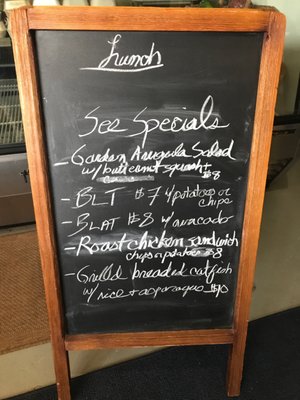 Lunch
See Specials
- Garden Arugula Salad
w/ butternut squash +
$8
- BLT $7 w/ potatoes or
chips
- BLAT $8 w/ avacado
- Roast chicken sandwich
chips or potatoes $8
- Grilled breaded catfish
w/ rice + asparagus $10